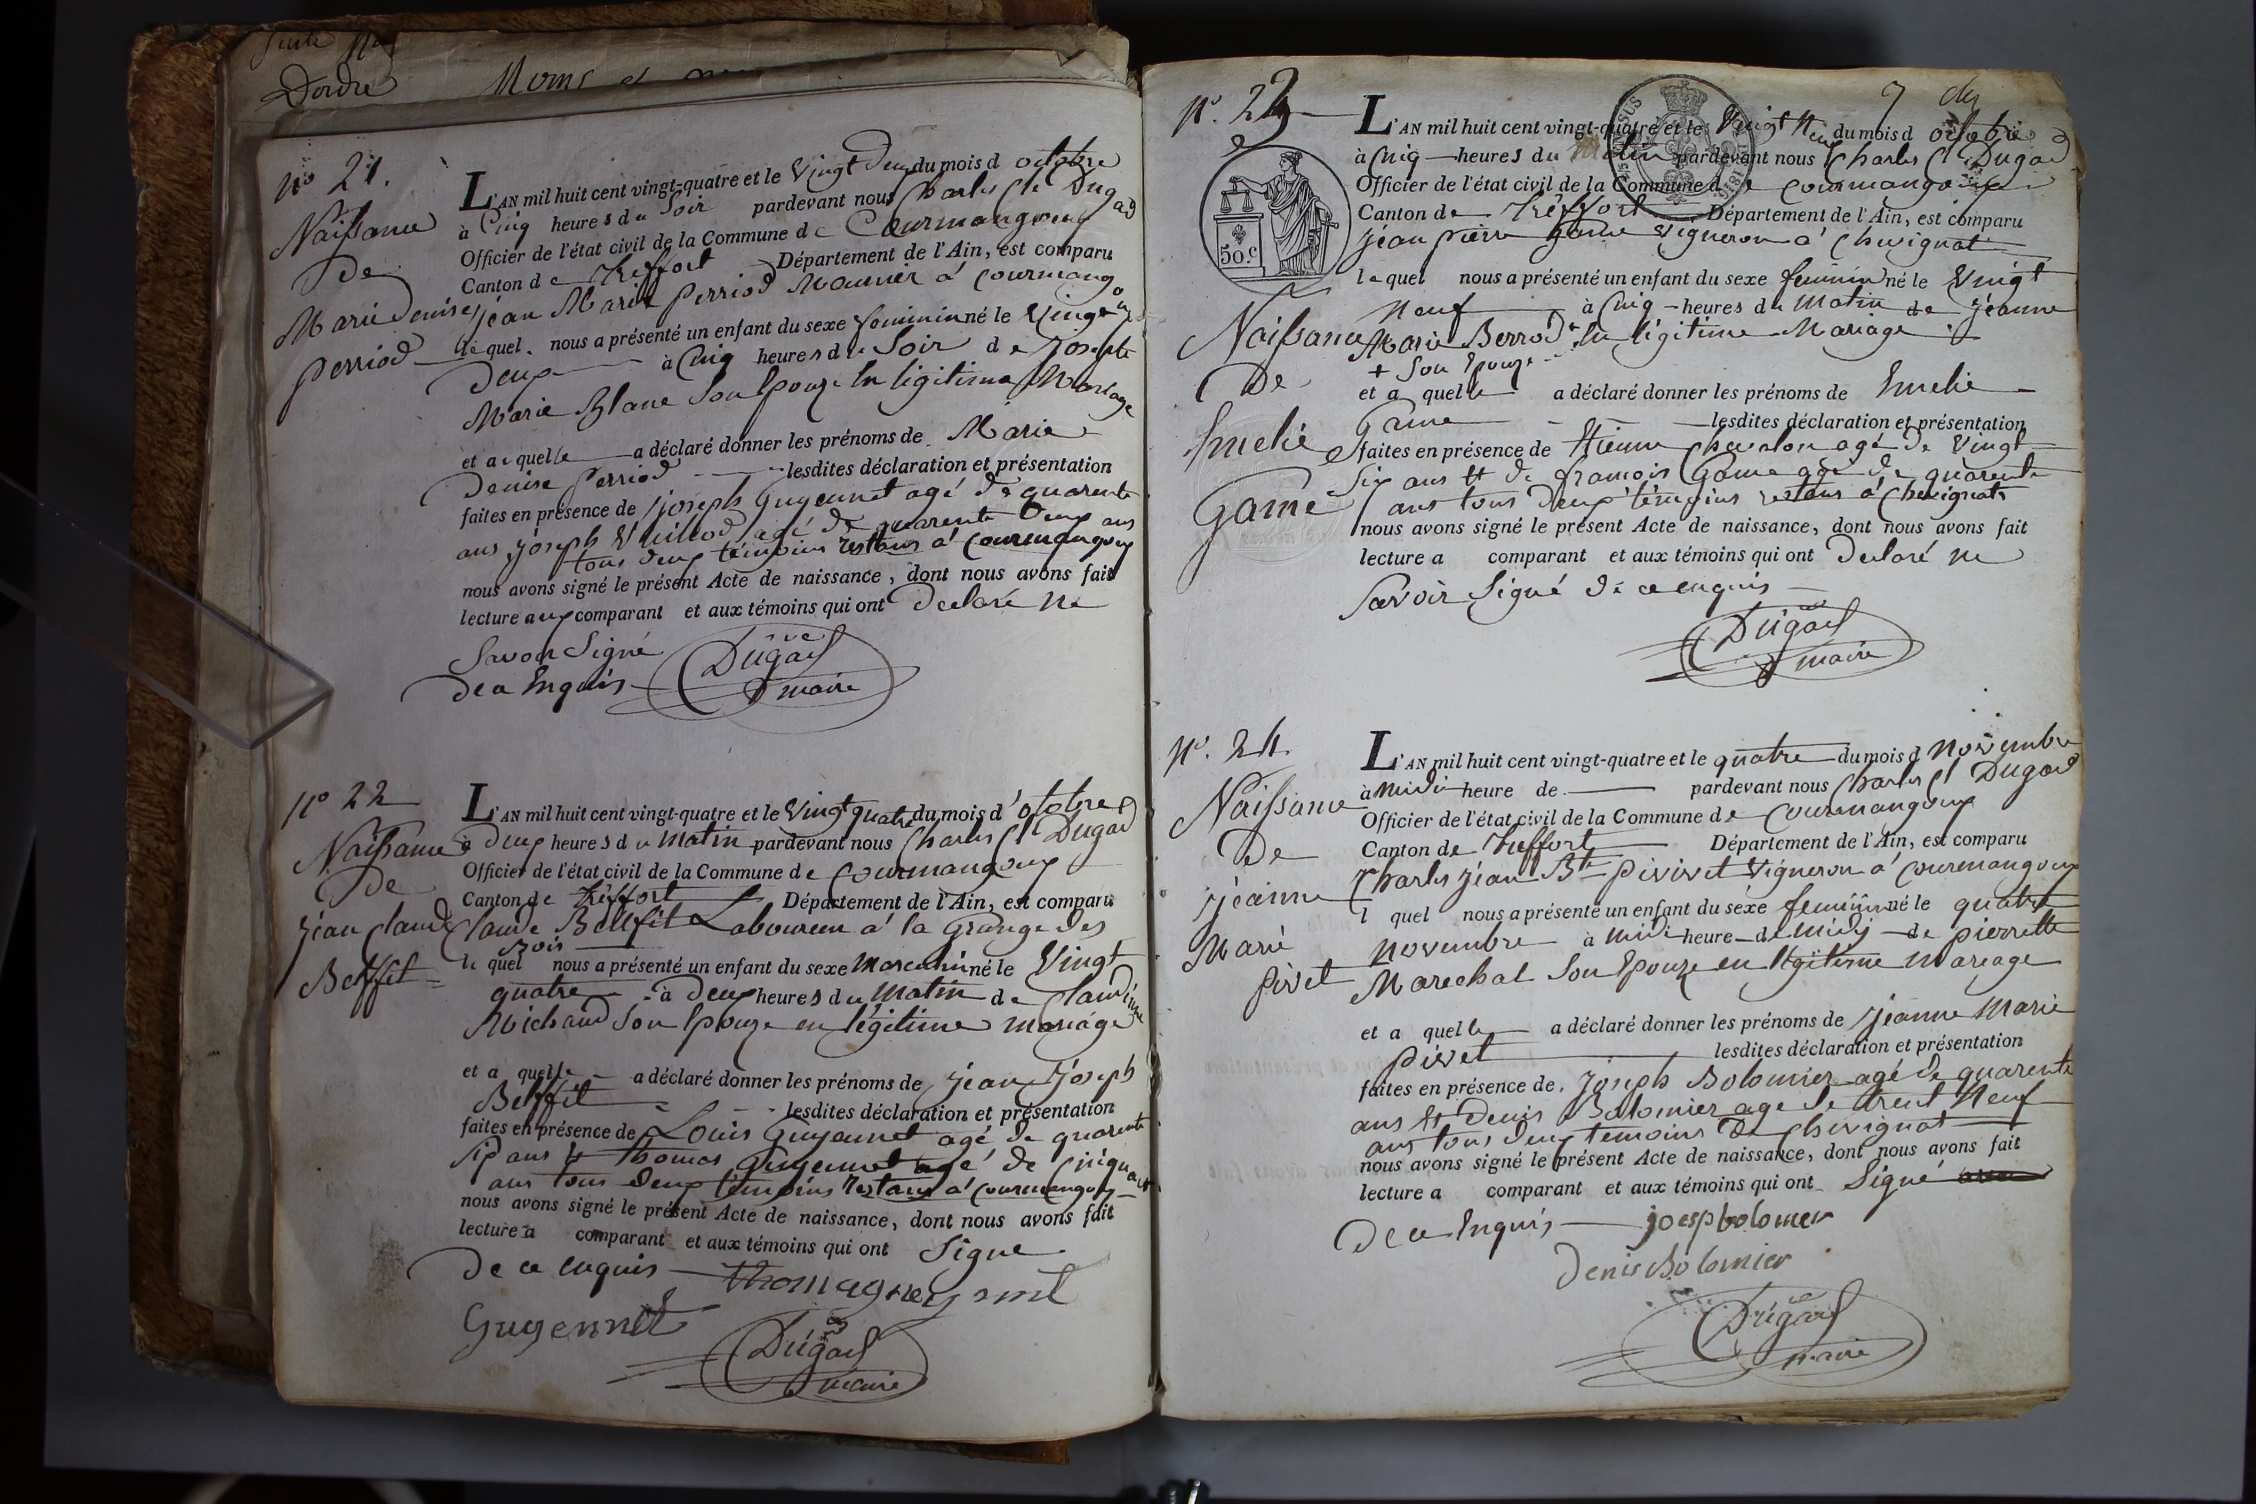 Suite
D'ordre
Noms et
n° 21.
Naissance
De
Marie Denise
perriod
L'AN mil huit cent vingt-quatre et le Vingt Deux du mois d octobre
à Cinq heures du Soir pardevant nous Charles Cl Dugad
Officier de l'état civil de la Commune de Courmangoux
Canton de Treffort Département de l'Ain, est comparu
jéan Marie perriod Meunier à Courmangoux
lequel nous a présenté un enfant du sexe feminin né le Vingt
Deux à Cinq heures du Soir de josephte
Marie Blanc Son Epouze En ligitime Mariage
et a quelle a déclaré donner les prénoms de Marie
Denise perriod lesdites déclaration et présentation
faites en présence de joseph Guyennet agé de quarente
ans joseph Vuillod agé de quarente Deux ans
tous deux témoins restans à Courmangoux
nous avons signé le présent Acte de naissance, dont nous avons fait
lecture aux comparant et aux témoins qui ont Declaré ne
Savoir Signé
De ce Enquis
Dugad
maire
n° 22
Naissance
De
jéan Claude
Belffit
L'AN mil huit cent vingt-quatre et le Vingt quatre du mois d'octobre
à Deux heures du Matin pardevant nous Charles Cl Dugad
Officier de l'état civil de la Commune de Courmangoux
Canton de Tréffort Département de l'Ain, est comparu
Claude Belffit Laboureur à la Grange des
Bois
lequel nous a présenté un enfant du sexe Masculin né le Vingt
quatre à Deux heures du Matin de Claudine
Michaud Son Epouze en légitime mariage
et a quelle a déclaré donner les prénoms de jéan joseph
Belffit lesdites déclaration et présentation
faites en présence de Louis Guyennet agé de quarente
Six ans & thomas Guyennet agé de Cinquante
ans tous Deux témoins restans à Courmangoux
nous avons signé le présent Acte de naissance, dont nous avons fait
lecture a comparant et aux témoins qui ont Signé
De ce enquis
Guyennet
Dugad
maire
7
N°. 23
Naissance
De
Emelie
Game
50.C
L'AN mil huit cent vingt-quatre et le Vingt Neuf du mois d octobre
à Cinq heures du Matin pardevant nous Charles Cl Dugad
Officier de l'état civil de la Commune de Courmangoux
Canton de Tréffort Département de l'Ain, est comparu
jéan pierre Game Vigneron à Chevignat
lequel nous a présenté un enfant du sexe feminin né le Vingt
Neuf à Cinq heures du Matin de jéanne
Marie Berrod + En légitime Mariage
+ Son Epouze
et a quelle a déclaré donner les prénoms de Emelie
Game lesdites déclaration et présentation
faites en présence de Etienne Chevalon agé de Vingt
Six ans Et de francois Game agé de quarente
ans tous Deux témoins restans à Chevignat
nous avons signé le présent Acte de naissance, dont nous avons fait
lecture a comparant et aux témoins qui ont Declaré ne
Savoir Signé de ce enquis
Dugad
maire
N°. 24.
Naissance
De
jéanne
Marie
pivet
L'AN mil huit cent vingt-quatre et le quatre du mois d Novembre
à Midi heure de pardevant nous Charles Cl Dugad
Officier de l'état civil de la Commune de Courmangoux
Canton de Treffort Département de l'Ain, est comparu
Charles jéan Bte Vigneron à Courmangoux
l quel nous a présenté un enfant du sexe feminin né le quatre
Novembre à Midi heure de Midy de pierrette
Marechal Son Epouze en légitime mariage
et a quelle a déclaré donner les prénoms de jéanne Marie
pivet lesdites déclaration et présentation
faites en présence de joseph Bolomier agé de quarente
ans Et Denis Bolomier age de trent Neuf
ans tous deux temoins De Chevignat
nous avons signé le présent Acte de naissance, dont nous avons fait
lecture a comparant et aux témoins qui ont Signé
De ce Enquis joesp bolomer
Denis Bolomier
Dugad
maire